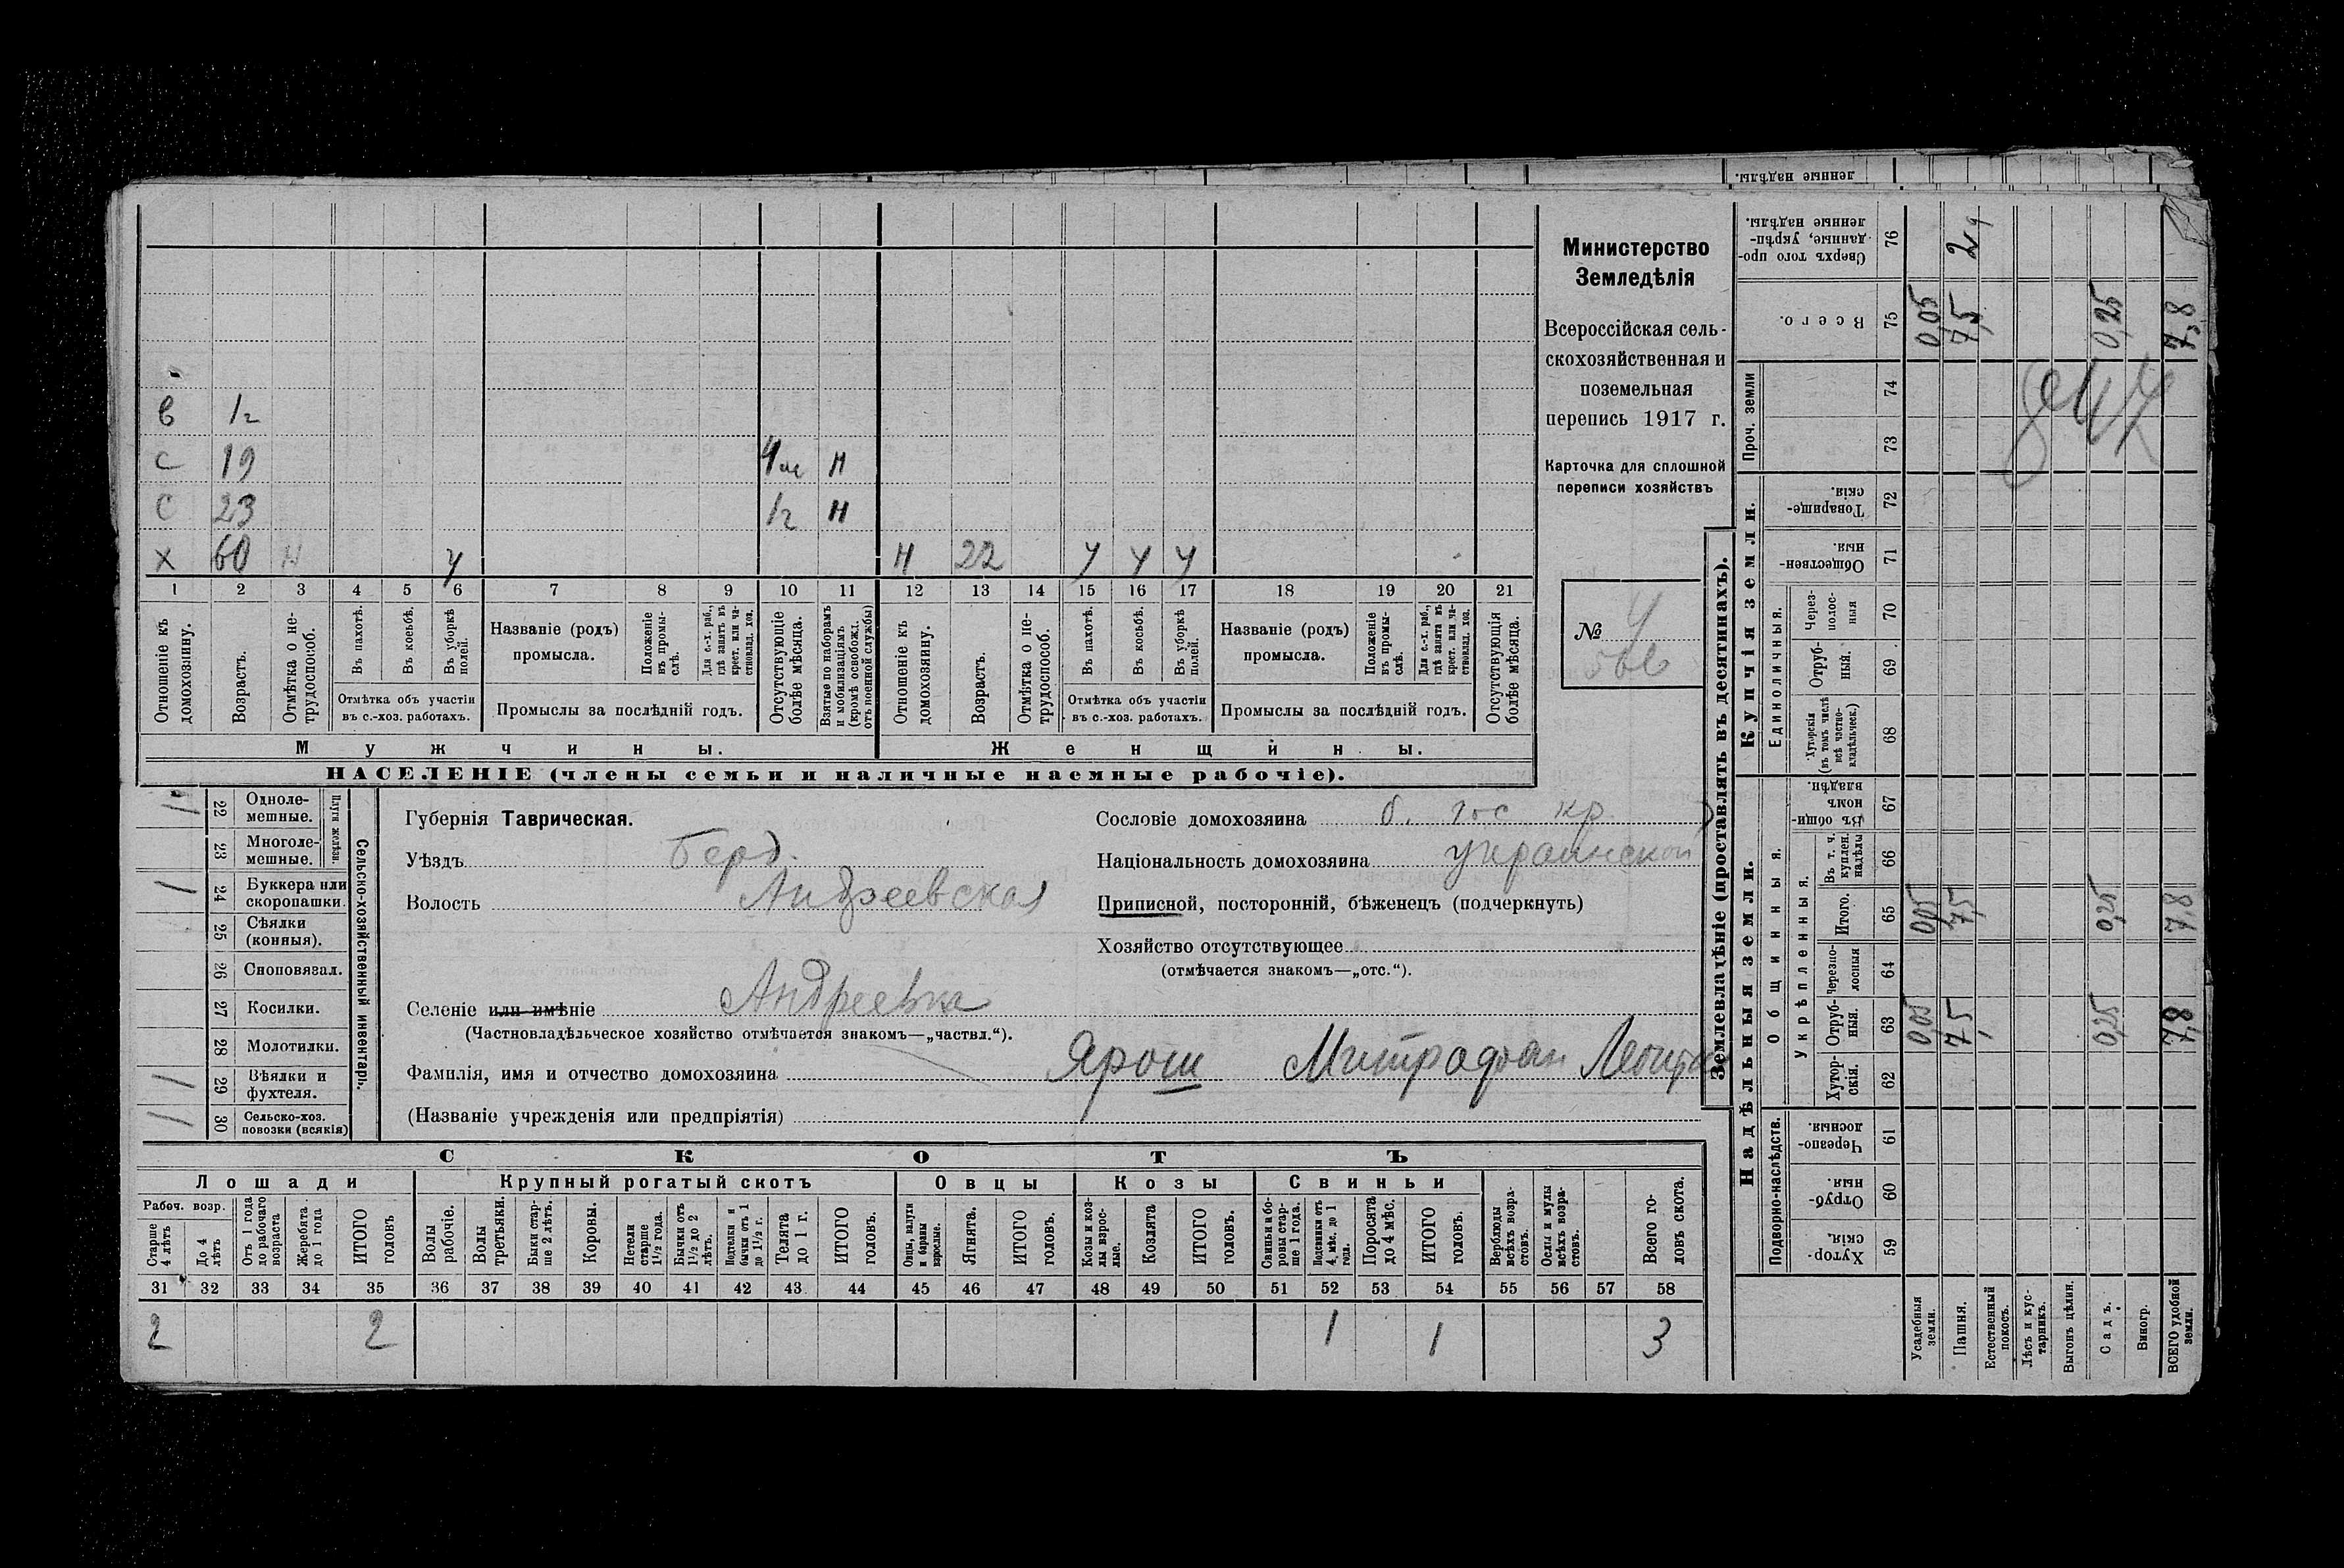 Министерство
Земледѣлія
Всероссійская сель-
скохозяйственная и
поземельная
перепись 1917 г.
Карточка для сплошной
переписи хозяйствъ
№ 4
в 1г
с 19 4м н
с 23 1г н
х 60 н у н 22 у у у
1 2 3 4 5 6 7 8 9 10 11 12 13 14 15 16 17 18 19 20 21
Отношеніе къ домохозяину.
Возрастъ.
Отмѣтка о не-трудоспособ.
Въ пахотѣ.
Въ косьбѣ.
Въ уборкѣ полей.
Отмѣтка объ участіи
въ с.-хоз. работахъ.
Названіе (родъ)
промысла.
Положеніе въ промы-слѣ.
Для с.-х. раб., гдѣ занятъ въ крест. или ча-стновлад. хоз.
Промыслы за послѣдній годъ.
Отсутствующіе болѣе мѣсяца.
Взятые по наборамъ и мобилизаціямъ (кромѣ освобожд. отъ военной службы)
Отношеніе къ домохозяину.
Возрастъ.
Отмѣтка о не-трудоспособ.
Въ пахотѣ.
Въ косьбѣ.
Въ уборкѣ полей.
Отмѣтка объ участіи
въ с.-хоз. работахъ.
Названіе (родъ)
промысла.
Положеніе въ промы-слѣ.
Для с.-х. раб., гдѣ занята въ крест. или ча-стновлад. хоз.
Промыслы за послѣдній годъ.
Отсутствующія болѣе мѣсяца.
Мужчины.
Женщины.
НАСЕЛЕНІЕ (члены семьи и наличные наемные рабочіе).
Сельско-хозяйственный инвентарь.
Плуги желѣзн.
1 22 Одноле-мешные.
23 Многоле-мешные.
1 24 Буккера или скоропашки.
25 Сѣялки (конныя).
26 Сноповязал.
27 Косилки.
28 Молотилки.
1 29 Вѣялки и фухтеля.
1 30 Сельско-хоз. повозки (всякія)
Губернія Таврическая.
Уѣздъ Берд.
Волость Андреевская
Селеніе или имѣніе Андреевка
(Частновладѣльческое хозяйство отмѣчается знакомъ—„частвл.“).
Фамилія, имя и отчество домохозяина Ярош Митрофан
(Названіе учрежденія или предпріятія)
Сословіе домохозяина б. гос кр.
Національность домохозяина украинской
Приписной, посторонній, бѣженецъ (подчеркнуть)
Хозяйство отсутствующее
(отмѣчается знакомъ—„отс.“).
СКОТЪ
Лошади
Крупный рогатый скотъ
Овцы
Козы
Свиньи
Рабоч. возр.
Старше 4 лѣтъ
До 4 лѣтъ
Отъ 1 года до рабочаго возраста
Жеребята до 1 года
ИТОГО головъ
Волы рабочіе.
Волы третьяки.
Быки стар-ше 2 лѣтъ.
Коровы.
Нетели старше 1½ года.
Бычки отъ 1½ до 2 лѣтъ.
Подтелки и бычки отъ 1 до 1½ г.
Телята до 1 г.
ИТОГО головъ.
Овцы, валухи и бараны взрослые.
Ягнята.
ИТОГО головъ.
Козы и коз-лы взрос-лые.
Козлята
ИТОГО головъ.
Свиньи и бо-ровы стар-ше 1 года.
Подсвинки отъ 4 мѣс. до 1 года.
Поросята до 4 мѣс.
ИТОГО головъ.
Верблюды всѣхъ возра-стовъ.
Ослы и мулы всѣхъ возра-стовъ.
Всего го-ловъ скота.
31 32 33 34 35 36 37 38 39 40 41 42 43 44 45 46 47 48 49 50 51 52 53 54 55 56 57 58
2 2 1 1 3
Землевладѣніе (проставлять въ десятинахъ).
Надѣльныя земли.
Купчія земли.
Проч. земли
Подворно-наслѣдств.
Общинныя.
Укрѣпленныя.
Единоличныя.
Сверхъ того про-данные, укрѣп-ленные надѣлы. 76 2,4
Всего. 75 0,05 7,5 0,25 7,8
74
73
Товарище-скія. 72
Обществен-ныя. 71
Через-полос-ныя 70
Отруб-ныя. 69
Хуторскія (въ томъ числѣ всѣ частно-владѣльческ.) 68
Въ общи-номъ владѣн. 67
Въ т. ч. куплен. надѣлы 66
Итого. 65 0,05 7,5 0,25 7,8
Черезпо-лосныя 64
Отруб-ныя. 63 0,05 7,5 0,25 7,8
Хутор-скія. 62
Черезпо-лосныя. 61
Отруб-ныя. 60
Хутор-скія. 59
Усадебныя земли.
Пашня.
Естественный покосъ.
Лѣсъ и кус-тарникъ.
Выгонъ цѣлин.
Садъ.
Виногр.
ВСЕГО удобной земли.
ленные надѣлы.